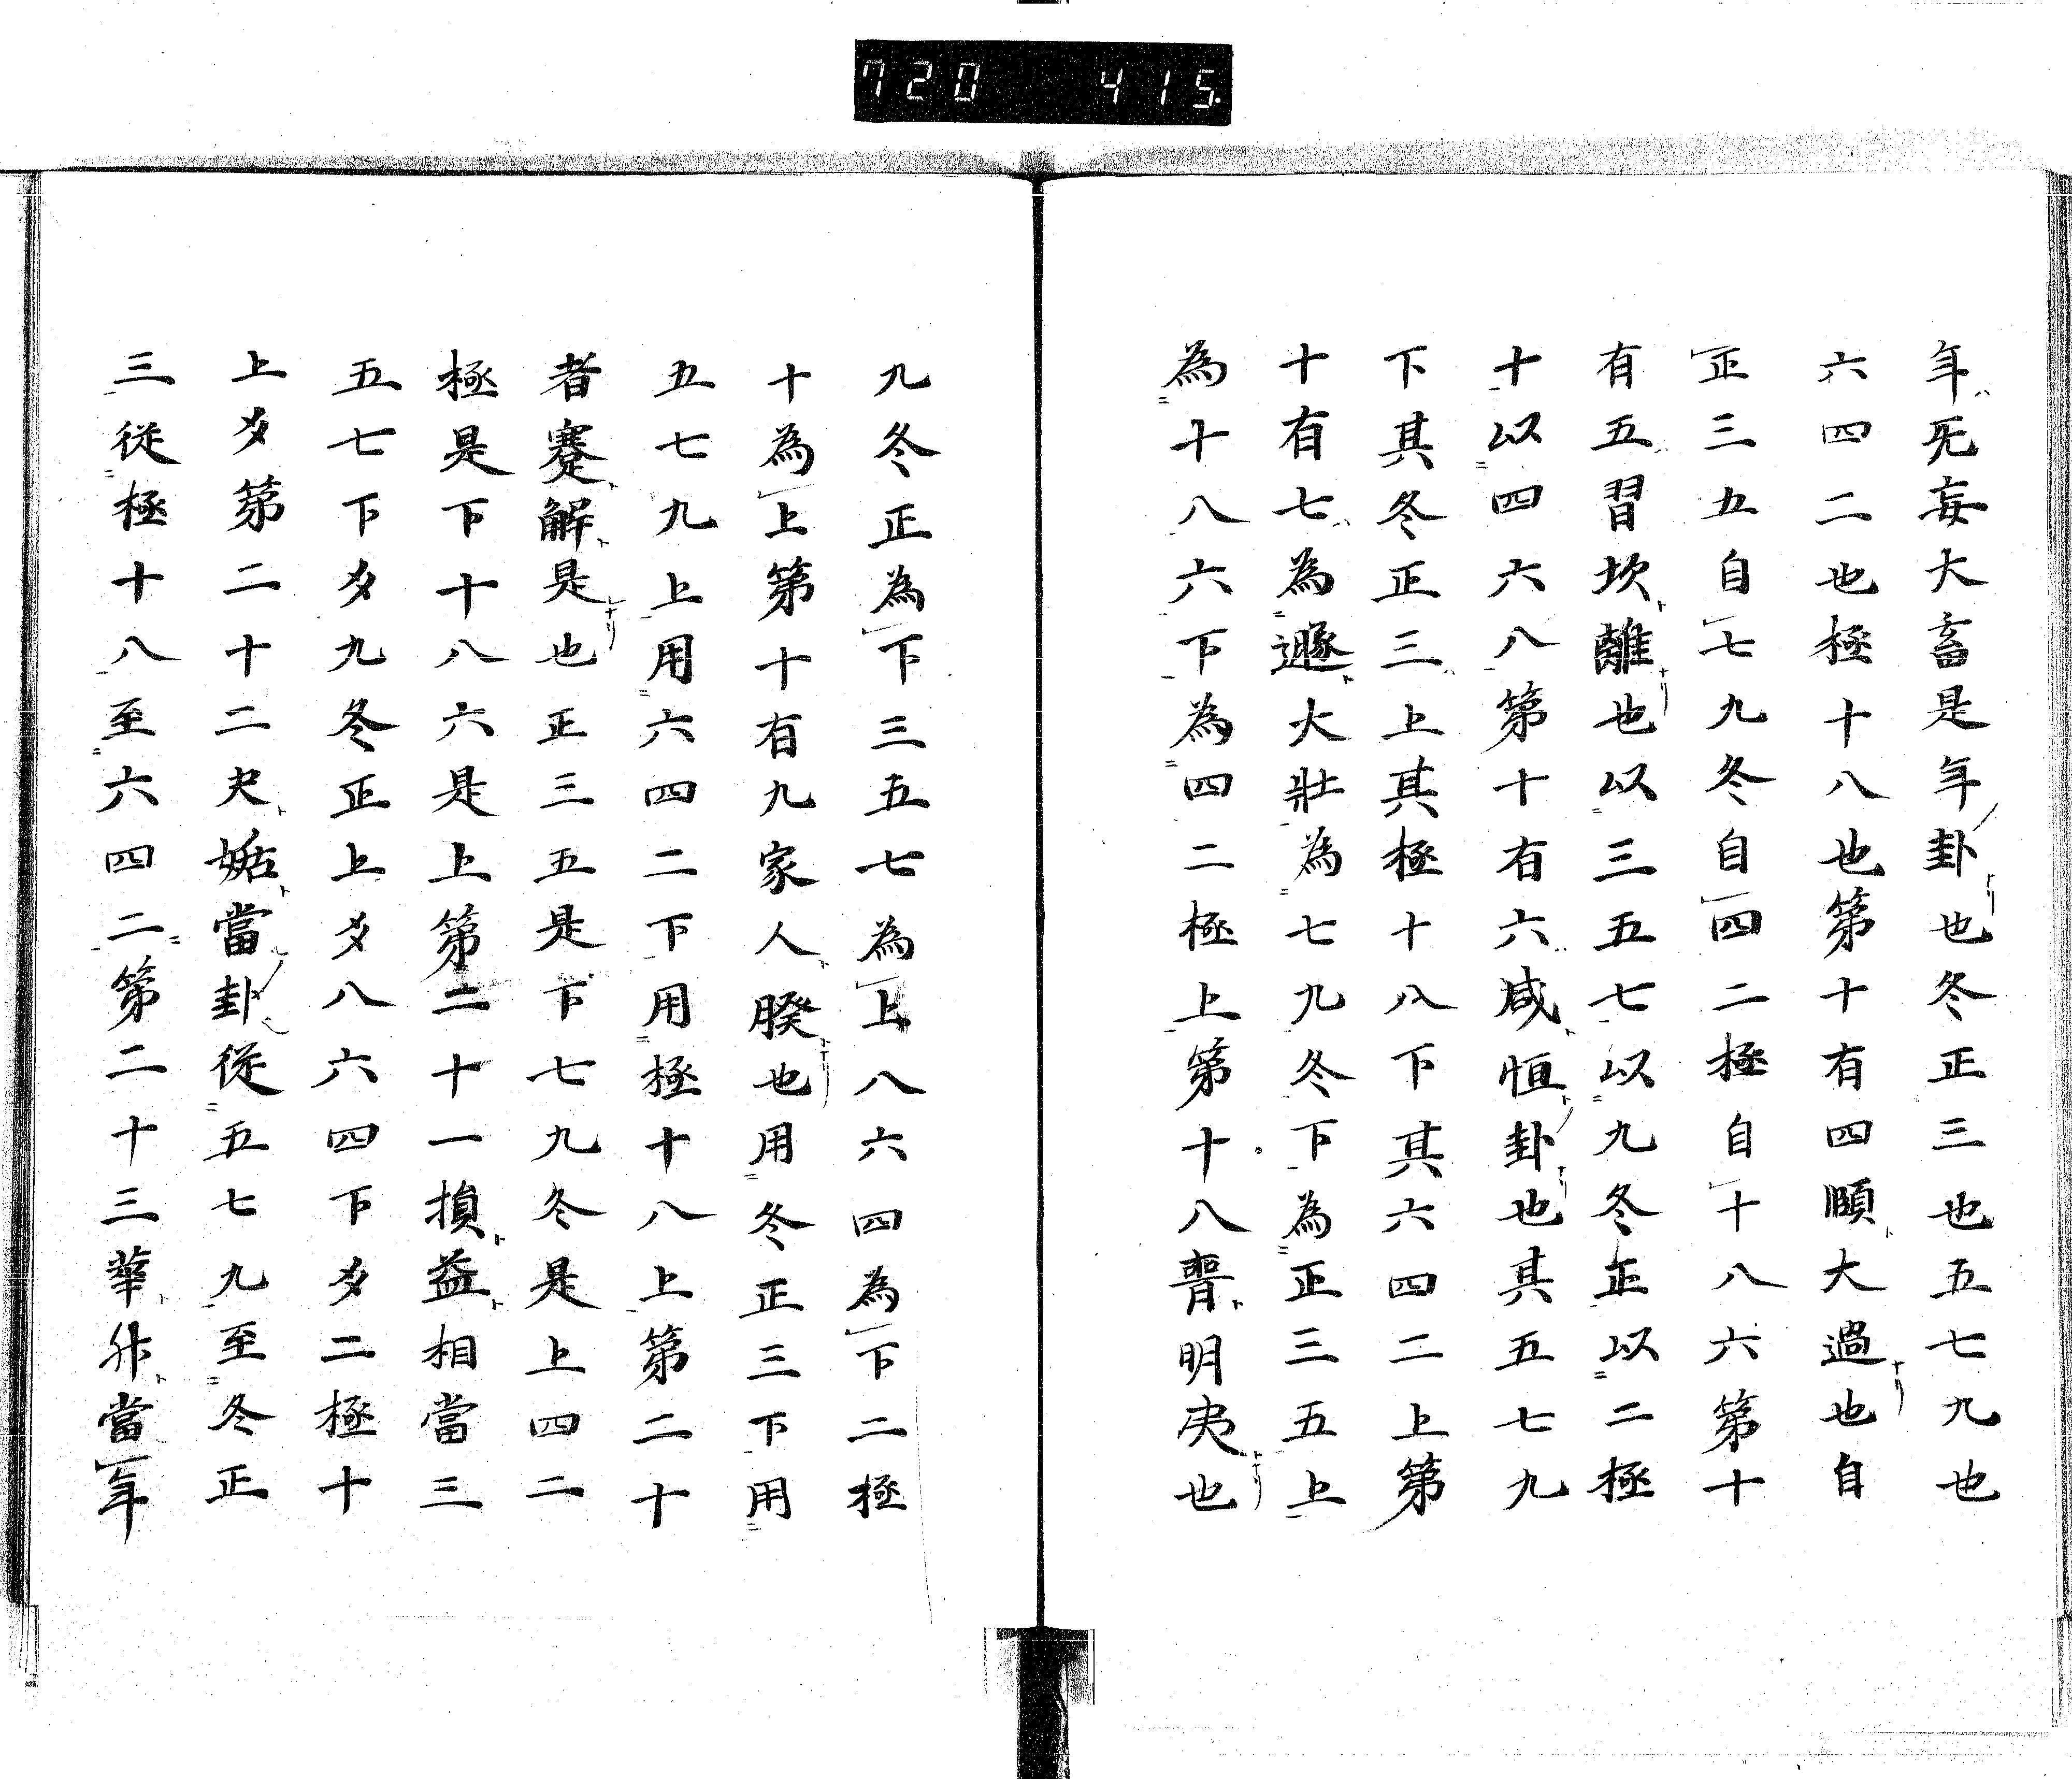 720 415.
年无妄大畜是年卦也冬正三也五七九也
六四二也極十八也第十有四頤大過也自
正三五自七九冬自四二極自十八六第十
有五習坎離也以三五七以九冬正以二極
十以四六八第十有六咸恒卦也其五七九
下其冬正三上其極十八下其六四二上第
十有七為遯大壮為七九冬下為正三五上
為十八六下為四二極上第十八晉明夷也
九冬正為下三五七為上八六四為下二極
十為上第十有九家人睽也用冬正三下用
五七九上用六四二下用極十八上第二十
者蹇解是也正三五是下七九冬是上四二
極是下十八六是上第二十一損益相當三
五七下爻九冬正上爻八六四下爻二極十
上爻第二十二夬姤當卦從五七九至冬正
三從極十八至六四二第二十三萃升當年